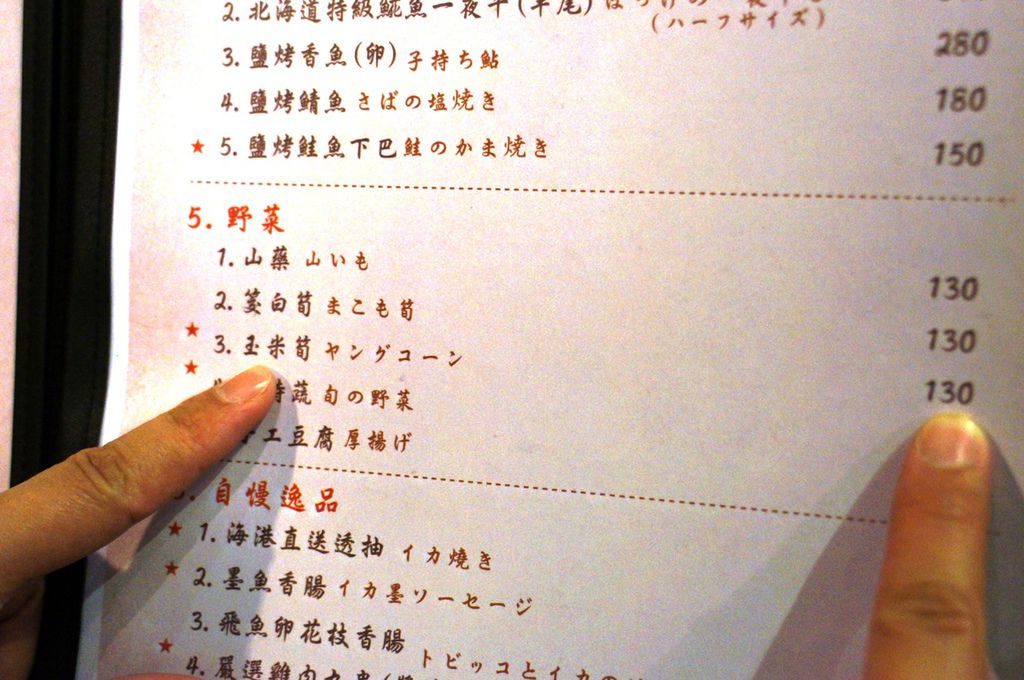 2. 北海道特級魮魚一夜干(半尾)
(ハーフサイズ)
3. 鹽烤香魚(卵) 子持ち鮎 280
4. 鹽烤鯖魚 さばの塩焼き 180
★ 5. 鹽烤鮭魚下巴 鮭のかま焼き 150
5. 野菜
1. 山藥 山いも 130
2. 筊白筍 まこも筍 130
★ 3. 玉米筍 ヤングコーン 130
★ 時蔬 旬の野菜
工豆腐 厚揚げ
自慢逸品
★ 1. 海港直送透抽 イカ焼き
★ 2. 墨魚香腸 イカ墨ソーセージ
3. 飛魚卵花枝香腸 トビッコとイカの
★ 4. 嚴選雞肉丸串